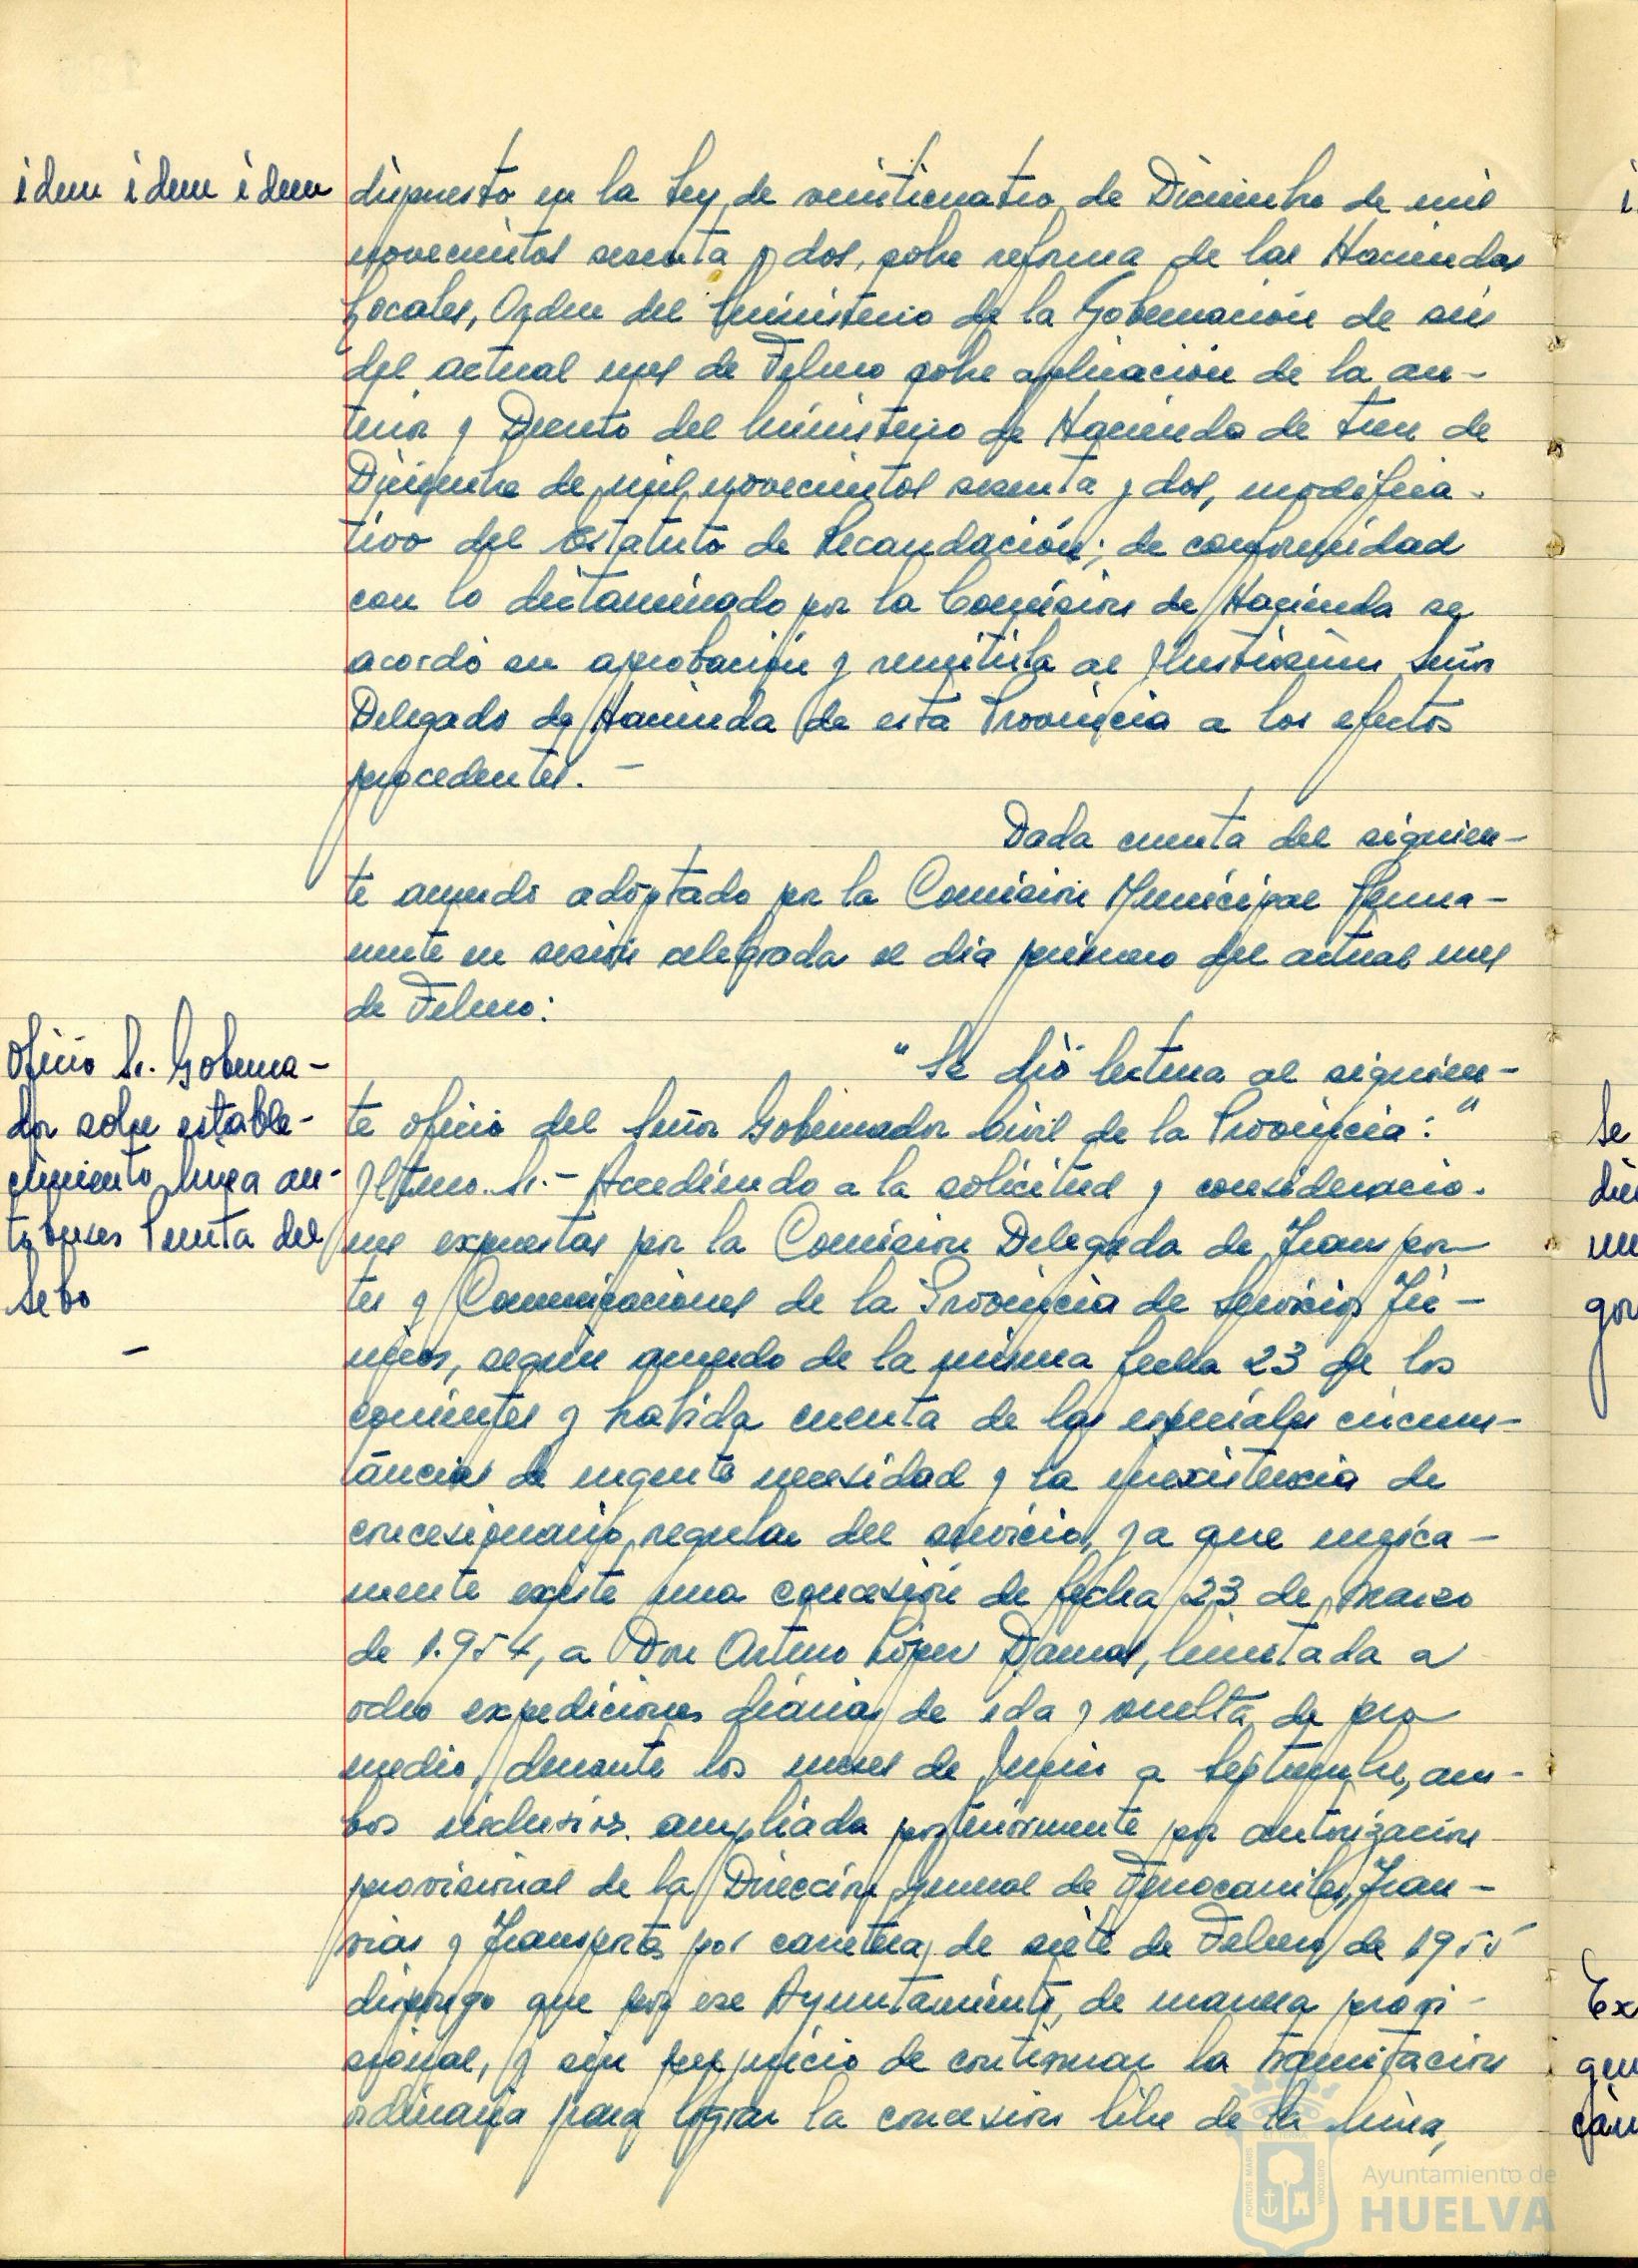 idem idem idem
dispuesto en la Ley de veinticuatro de Diciembre de mil
novecientos sesenta y dos, sobre reforma de las Haciendas
Locales, Orden del Ministerio de la Gobernación de seis
del actual mes de Febrero sobre aplicación de la an-
terior y Decreto del Ministerio de Hacienda de trece de
Diciembre de mil novecientos sesenta y dos, modifica-
tivo del Estatuto de Recaudación; de conformidad
con lo dictaminado por la Comisión de Hacienda se
acordó su aprobación y remitirla al Ilustrísimo Señor
Delegado de Hacienda de esta Provincia a los efectos
procedentes. -
Dada cuenta del siguien-
te acuerdo adoptado por la Comisión Municipal Perma-
nente en sesión celebrada el día primero del actual mes
de Febrero:
Oficio Sr. Goberna-
dor sobre estable-
cimiento línea au-
tobuses Punta del
Sebo
-
"Se dió lectura al siguien-
te oficio del Señor Gobernador Civil de la Provincia: "
Iltmo. Sr.- Accediendo a la solicitud y consideracio-
nes expuestas por la Comisión Delegada de Transpor-
tes y Comunicaciones de la Provincia de Servicios Téc-
nicos, según acuerdo de la misma fecha 23 de los
corrientes y habida cuenta de las especiales circuns-
tancias de urgente necesidad y la inexistencia de
concesionario regular del servicio, ya que única-
mente existe una concesión de fecha 23 de Marzo
de 1.954, a Don Arturo López Damas, limitada a
ocho expediciones diarias de ida y vuelta de pro
medio, durante los meses de Junio a Septiembre, am-
bos inclusives. ampliada posteriormente por autorización
provisional de la Dirección general de Ferrocarriles, Tran-
vías y Transportes por carretera, de siete de Febrero de 1955
dispongo que por ese Ayuntamiento, de manera provi-
sional, y sin perjuicio de continuar la tramitación
ordinaria para lograr la concesión libre de la línea,
i
Se
gor
Ex
Ayuntamiento de
HUELVA